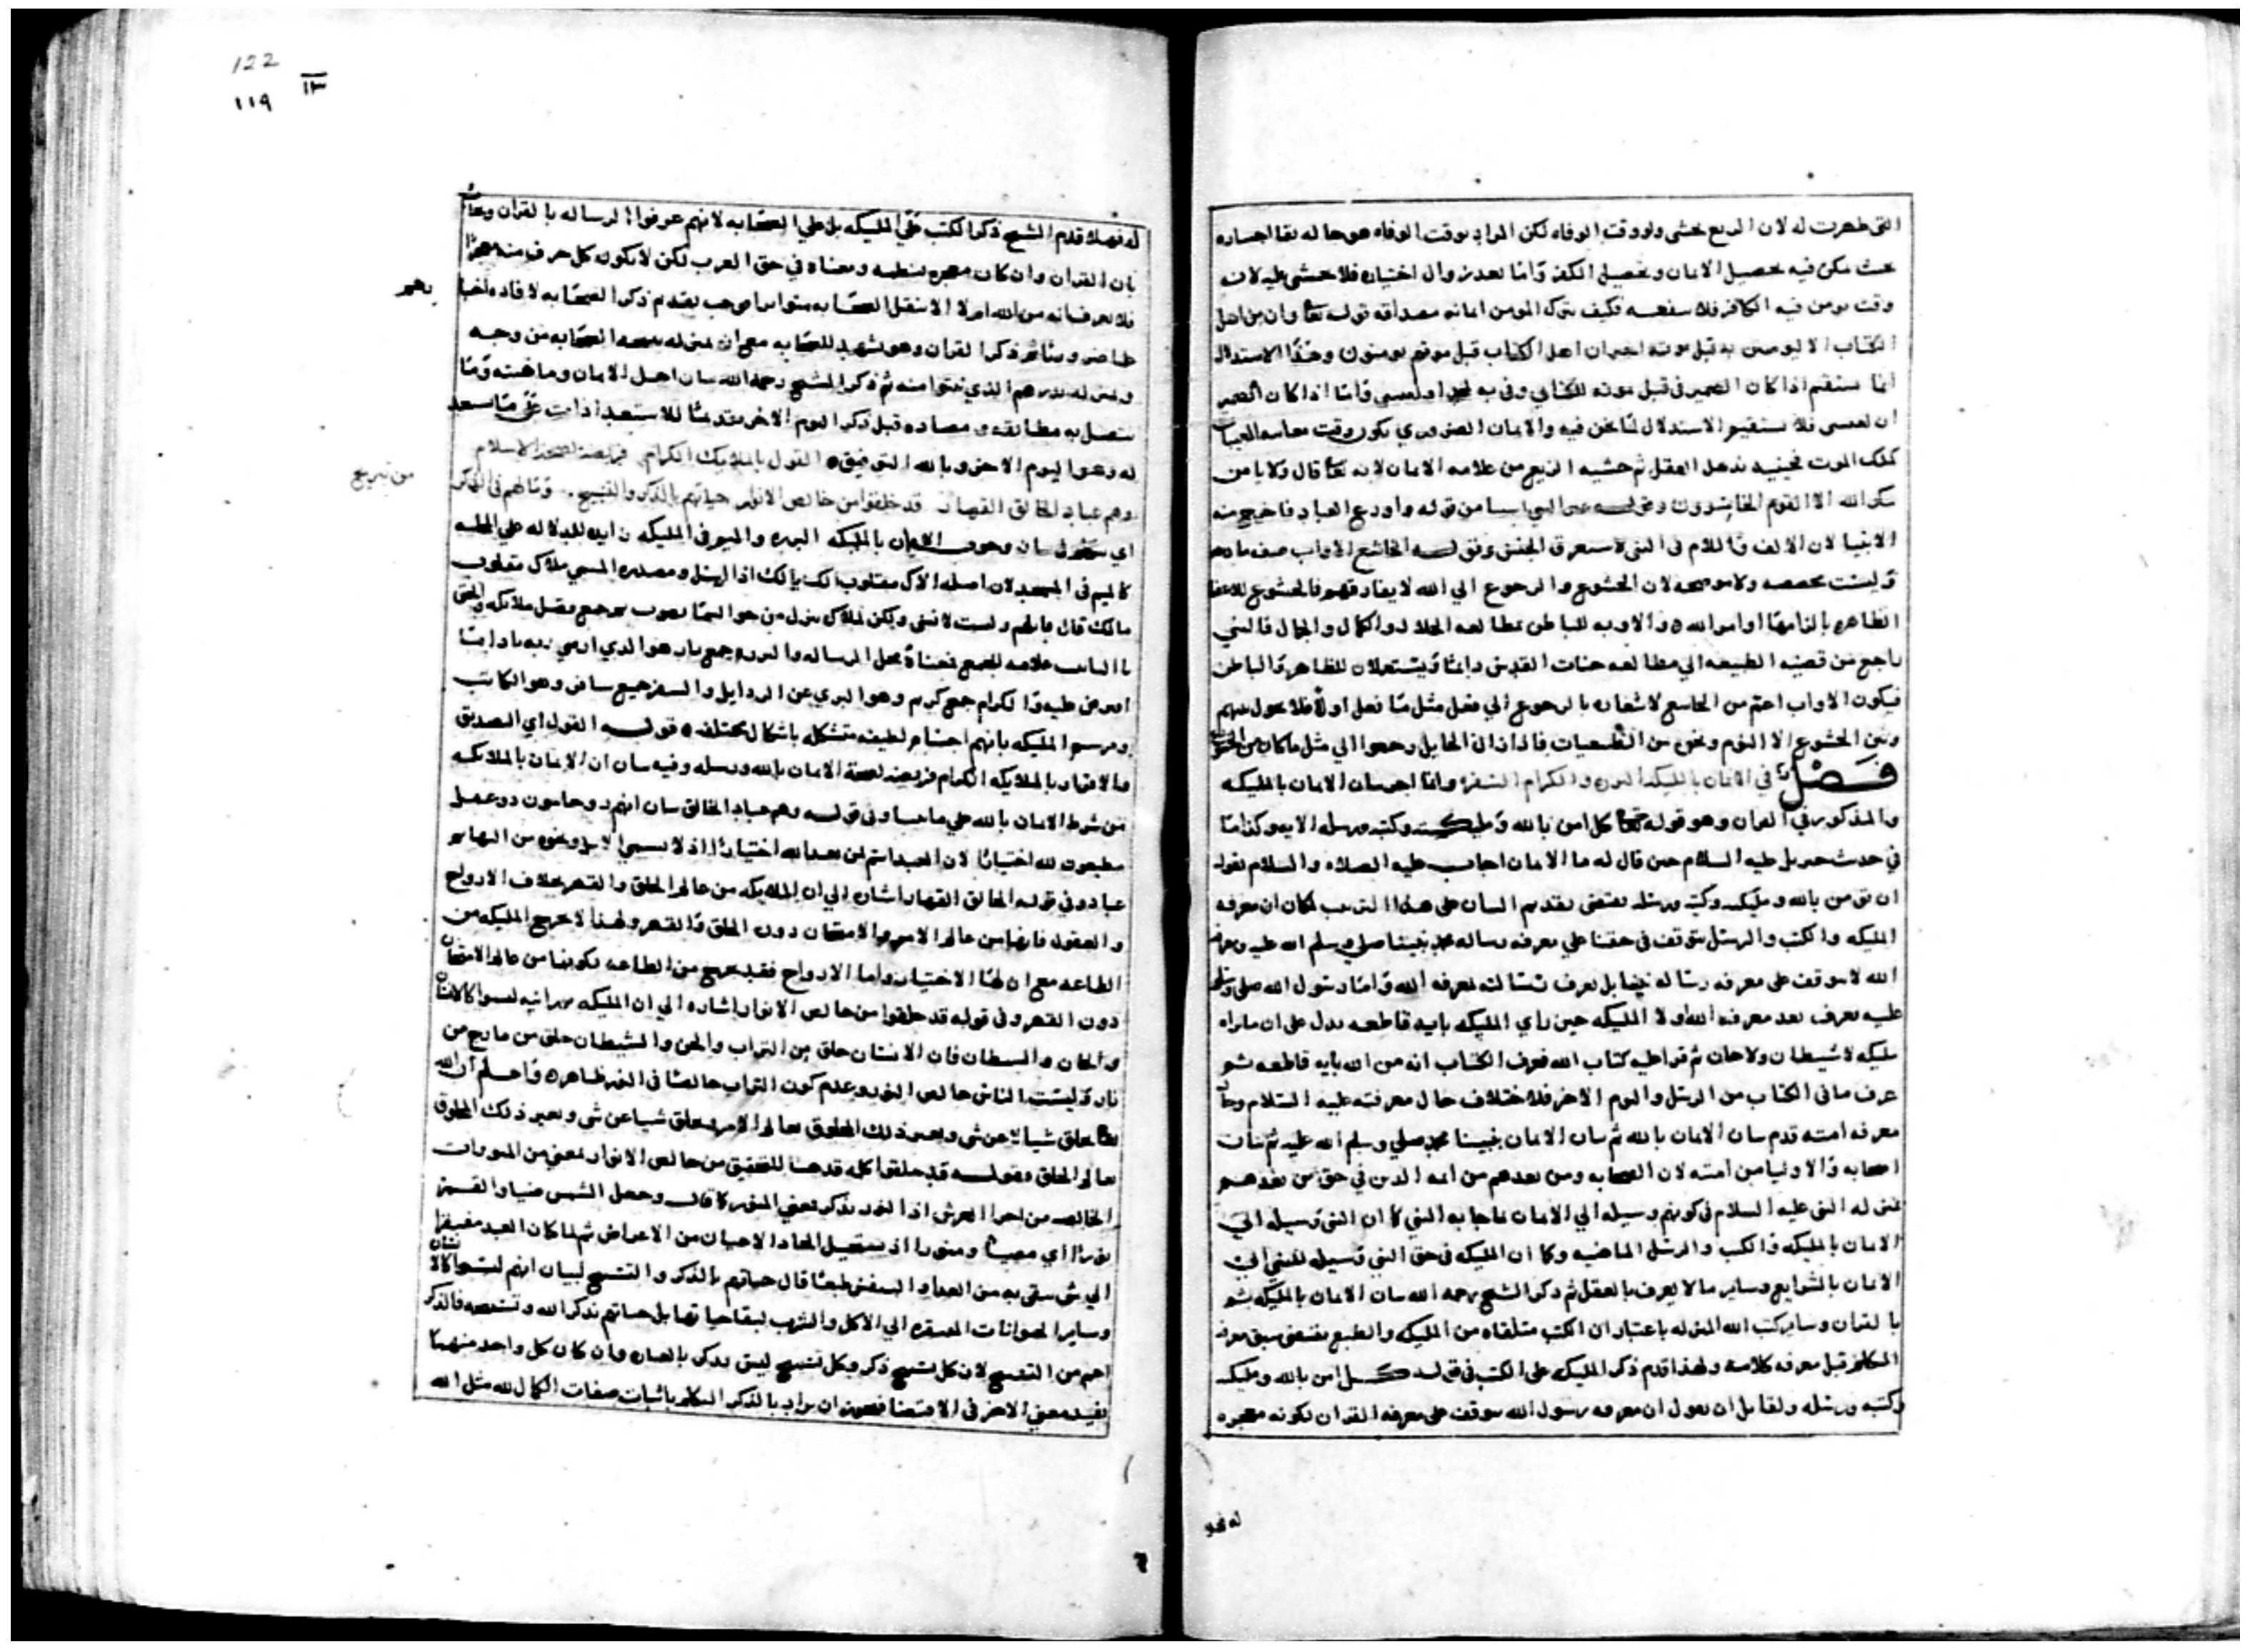 التي ظهرت له لان الربع يخشى ولو وقت الوفاه لكن المراد بوقت الوفاه هو حاله بقا اختياره
بحيث يمكن فيه تحصيل الايمان وتحصيل الكفر واما بعد زوال اختياره فلا يخشى عليه لانه
وقت يومن فيه الكافر فلا ينفعه فكيف يترك المومن ايمانه مصداقه قوله تعا وان من اهل
الكتاب الا ليومنن به قبل موته اخبر ان اهل الكتاب قبل موتهم يومنون وهذا الاستدلال
انما يستقيم اذا كان الضمير في قبل موته للكتابي وفي به لمحمد او لعيسى واما اذا كان الضمير
ان لعيسى فلا يستقيم الاستدلال لما نحن فيه والايمان الضروري يكون وقت معاينه العيان
كملك الموت فحينيد يذهل العقل ثم خشيه الزيع من علامه الايمان لانه تعا قال ولا يامن
مكر الله الا القوم الخاسرون وخرج النبي ايضا من قوله واودع العباد فاخرج منه
الانبيا لان الالف واللام في النبي لاستغرق الجنس وقوله الخاشع الاواب صفه مادحه
وليست مخصصه ولا موضحه لان الخشوع والرجوع الي الله لا يفارقهم فالخشوع للاعضا
الظاهره بالزامها اوامر الله والاوبه للباطن بمطالعه الجلال والكمال والجمال فالنبي
راجع من قضيه الطبيعه الي مطالعه جنات القدس دايما ويستعملان للظاهر والباطن
فيكون الاواب اعم من الخاشع لاشعاره بالرجوع الي فعل مثل ما فعل اولا فلا يحول بينهم
وبين الخشوع الا النوم ونحوه من الطبيعيات فاذا زال الحايل رجعوا الي مثل ما كان من الخشوع
فصل في الايمان بالمليكه البرره والكرام السفره وانما اخر بيان الايمان بالمليكه
والمذكور في القران وهو قوله تعا كل امن بالله ومليكته وكتبه ورسله الايه وكذا ما
في حديث جبريل عليه السلام حين قال له ما الايمان اجاب عليه الصلاه والسلام بقوله
ان تومن بالله ومليكته وكتبه ورسله يقتضي تقديم البيان على هذا الترتيب لمكان ان معرفه
المليكه والكتب والرسل يتوقف في حقنا علي معرفه رساله محمد نبينا صلي وسلم الله عليه ومعرفه
الله لا يتوقف على معرفه رساله نبينا بل يعرف رسالته بمعرفه الله واما رسول الله صلي وسلم
عليه يعرف بعد معرفه الله اولا المليكه حين راي المليكه بايه قاطعه يدل على ان ما راه
مليكه لا شيطان ولا جان ثم قرا عليه كتاب الله فعرف الكتاب انه من الله بايه قاطعه ثم
عرف ما في الكتاب من الرسل واليوم الاخر فلاختلاف حال معرفته عليه السلام وحال
معرفه امته قدم بيان الايمان بالله ثم بيان الايمان بنبينا محمد صلي وسلم الله عليه ثم بيان
اصحابه والاوليا من امته لان الصحابه ومن بعدهم من ايمه الدين في حق من بعدهم
بمنزله النبي عليه السلام في كونهم وسيله الي الايمان بما جا به النبي كما ان النبي وسيله الي
الايمان بالمليكه والكتب والرسل الماضيه وكما ان المليكه في حق النبي وسيله للنبي الي
الايمان بالشرايع وساير ما لا يعرف بالعقل ثم ذكر الشيخ رحمه الله بيان الايمان بالمليكه ثم
بالقران وساير كتب الله المنزله باعتبار ان الكتب متلقاه من المليكه والطبع يقتضي سبق معرفه
المتكلم قبل معرفه كلامه ولهذا قدم ذكر المليكه على الكتب في قوله كل امن بالله ومليكته
وكتبه ورسله ولقايل ان يقول ان معرفه رسول الله يتوقف على معرفه القران لكونه معجزه
له فهو
122
١١٩
١٣
له فهلا قدم الشيخ ذكر الكتب على المليكه بل علي الصحابه لانهم عرفوا الرساله بالقران وبجاب
بان القران وان كان معجزه بنظمه ومعناه في حق العرب لكن لا يكون كل حرف منه معجزا
فلا يعرف انه من الله ام لا الا بنقل الصحابه متواترا فوجب تقديم ذكر الصحابه لافاده اخبا
رهم
ثم ذكر الشيخ رحمه الله بيان اهل الايمان وماهيته وما
يتصل به مطابقه ومضاده قبل ذكر اليوم الاخر تقديما للاستعداد ات على ما يستعد
له وهو اليوم الاخر وبالله التوفيق القول بالملايك الكرام فريضه لصحه الاسلام
وهم عباد الخالق القهار قد خلقوا من خالص الانوار حياتهم بالذكر والتسبيح وما لهم في الذكر
من تبريح
اي هذا القول بيان وجوب الايمان بالمليكه البرره والميم في المليكه زايده للدلاله علي المحليه
كالميم في المسجد لان اصله الاك مقلوب الك يالك اذا ارسل ومصدره الميمي ملاك مقلوب
مالك قال فلست لانسي ولكن لملاك تنزل من جو السما يصوب يجمع فقيل ملايكه والحق
التا علامه للجمع فمعناه محل الرساله والبرره جمع بار هو الذي ارضي ربه بادا ما
افترض عليه والكرام جمع كريم وهو البري عن الرذايل والسفر جمع سافر وهو الكاتب
ورسم المليكه بانهم اجسام لطيفه متشكله باشكال مختلفه قوله القول اي التصديق
والاقرار بالملايكه الكرام فريضه لصحه الايمان بالله ورسله وفيه بيان ان الايمان بالملايكه
من شرط الايمان بالله على ما مضا وفي قوله وهم عباد الخالق بيان انهم روحانيون ذو عقل
مطيعون لله اختيارا لان العبد اسم لمن يعبد الله اختيارا اذ لا يسمي الابل ونحوه من البهايم
عبادا وفي قوله الخالق القهار اشاره الي ان الملايكه من عالم الخلق والقهر بخلاف الارواح
والعقول فانها من عالم الامر والامتحان دون الخلق والقهر ولهذا لا يخرج المليكه من
الطاعه مع ان لها الاختيار واما الارواح فقد يخرج من الطاعه لكونها من عالم الامتحان
دون القهر وفي قوله قد خلقوا من خالص الانوار اشاره الي ان المليكه نورانيه ليسوا كالانسان
والجان والشيطان فان الانسان خلق من التراب والجن والشيطان خلق من مارج من
نار وليست النار خالص النور وعدم كون التراب خالصا في النور ظاهره واعلم ان الله
تعا يخلق شيا لا عن شي ويعبر ذلك المخلوق بعالم الامر ويخلق شيا عن شي ويعبر ذلك المخلوق
بعالم الخلق وقوله قد خلقوا كله قد هنا للتحقيق من خالص الانوار بمعني من المنورات
الخالصه من اجزا العرش اذ النور يذكر بمعني المنور كما قال وجعل الشمس ضيا والقمر
نورا اي مضيا ومنورا اذ يستحيل اتحاد الاعيان من الاعراض ثم لما كان العبد مفتقرا
الي شي يتقى به من الغذا والتنفس طبعا قال حياتهم بالذكر والتسبيح لبيان انهم ليسوا كالانسان
وساير الحيوانات المفتقره الي الاكل والشرب لبقا حياتها بل حياتهم بذكر الله وتسبيحه فالذكر
اعم من التسبيح لان كل تسبيح ذكر وكل تسبيح ليس بذكر بالعباره وان كان كل واحد منهما
يفيد معني الاخر في الاقتضا فيجوز ان يراد بالذكر التكلم باثبات صفات الكمال لله مثل الله